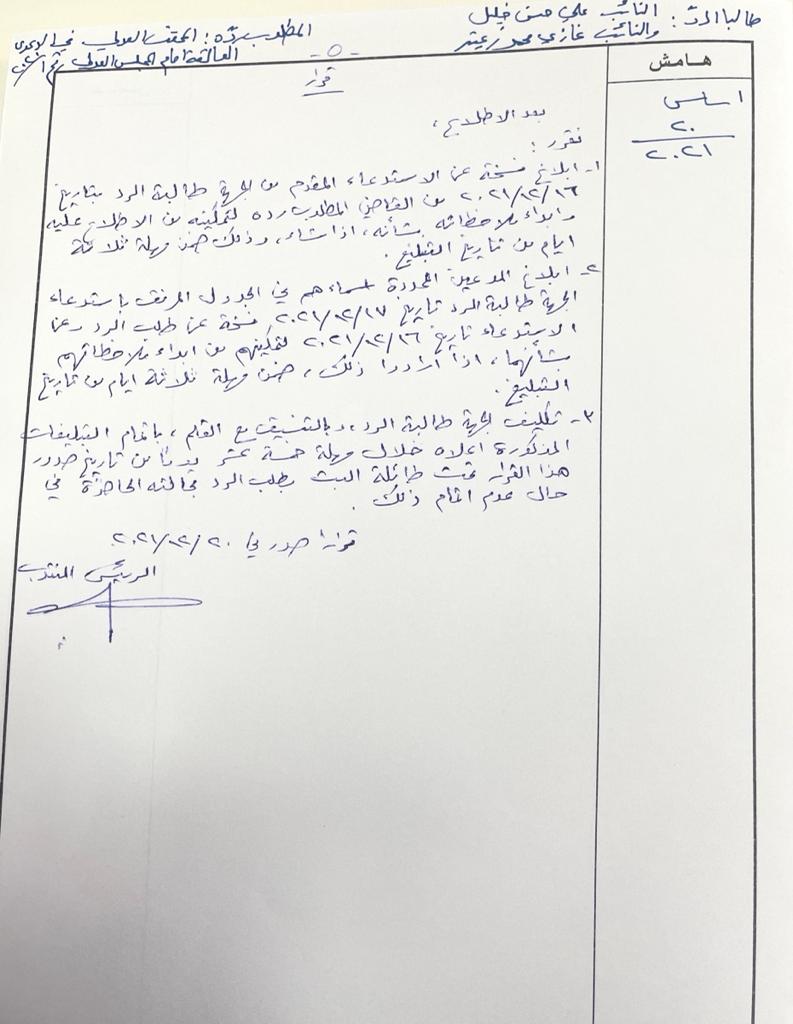 طالبا الردّ: النائب علي حسن خليل
والنائب غازي محمد زعيتر
المطلوب ردّه: المحقق العدلي في الدعوى
العالقة امام المجلس العدلي رقم
- ٥ -
هامش
اساس
٢٠
٢٠٢١
قرار
بعد الاطلاع،
نقرر:
١- ابلاغ نسخة عن الاستدعاء المقدم من الجهة طالبة الرد بتاريخ
٢٠٢١/١٢/١٦ من القاضي المطلوب رده لتمكينه من الاطلاع عليه
وابداء ملاحظاته بشأنه، اذا شاء، وذلك ضمن مهلة ثلاثة
ايام من تاريخ التبليغ.
٢- ابلاغ المدعين المحددة اسماءهم في الجدول المرفق باستدعاء
الجهة طالبة الرد تاريخ ٢٠٢١/١٢/١٧ نسخة عن طلب الرد وعن
الاستدعاء تاريخ ٢٠٢١/١٢/١٦ لتمكينهم من ابداء ملاحظاتهم
بشأنهما، اذا ارادوا ذلك، ضمن مهلة ثلاثة ايام من تاريخ
التبليغ.
٣- تكليف الجهة طالبة الرد، وبالتنسيق مع القلم، باتمام التبليغات
المذكورة اعلاه خلال مهلة خمسة عشر يوماً من تاريخ صدور
هذا القرار تحت طائلة البت بطلب الرد بحالته الحاضرة في
حال عدم اتمام ذلك.
قراراً صدر في ٢٠٢١/١٢/٢٠
الرئيس المنتدب